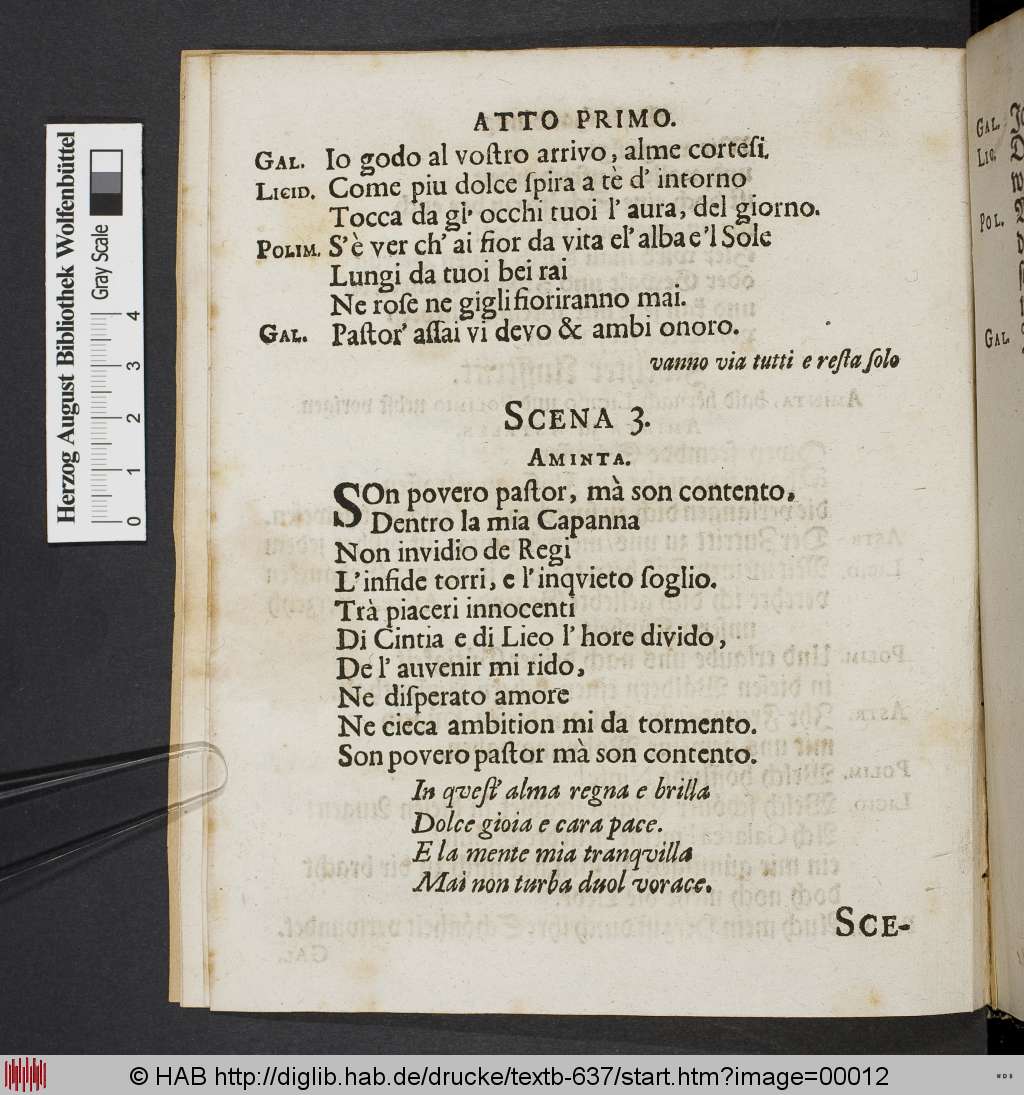 ATTO PRIMO.
GAL. Io godo al voſtro arrivo, alme corteſi.
LICID. Come piu dolce ſpira a tè d' intorno
Tocca da gl' occhi tuoi l' aura, del giorno.
POLIM. S'è ver ch' ai fior da vita el' alba e 'l Sole
Lungi da tuoi bei rai
Ne roſe ne gigli fioriranno mai.
GAL. Paſtor' aſſai vi devo & ambi onoro.
vanno via tutti e reſta ſolo
SCENA 3.
AMINTA.
SOn povero paſtor, mà son contento,
Dentro la mia Capanna
Non invidio de Regi
L' infide torri, e l' inqvieto ſoglio.
Trà piaceri innocenti
Di Cintia e di Lieo l' hore divido,
De l' auvenir mi rido,
Ne diſperato amore
Ne cieca ambition mi da tormento.
Son povero paſtor mà son contento.
In qveſt' alma regna e brilla
Dolce gioia e cara pace.
E la mente mia tranqvilla
Mai non turba duol vorace.
SCE-
GAL.
LIC.
POL.
GAL
Herzog August Bibliothek Wolfenbüttel
Gray Scale
0 1 2 3 4
© HAB http://diglib.hab.de/drucke/textb-637/start.htm?image=00012